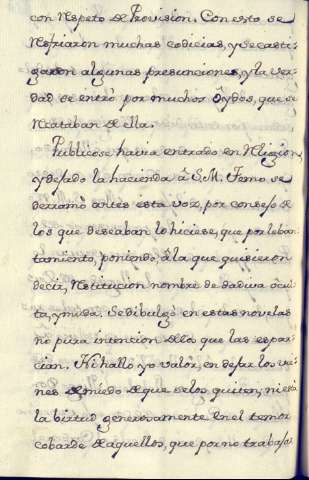 con Respeto de Provision. Con esto se
Resfriaron muchas codicias, y se casti-
garon algunas presunciones, y la ver-
dad se entrò por muchos ôydos, que se
Recataban de ella.
Publicose havia entrado en Religion,
y dejado la hacienda â S.M. Temo se
derramò antes esta voz, por consejo de
los que deseaban lo hiciese, que por leban-
tamiento, poniendo, â la que quisieron
decir, Restitucion nombre de dadiva ócul-
ta, y muda. Se dibulgò en estas novelas
no pura intencion de los que las espar-
cian. Ni hallo yo valor, en dejar los vie-
nes de miedo de que se los quiten, ni està
la birtud generosamente en el temor
cobarde de aquellos, que por no trabajar